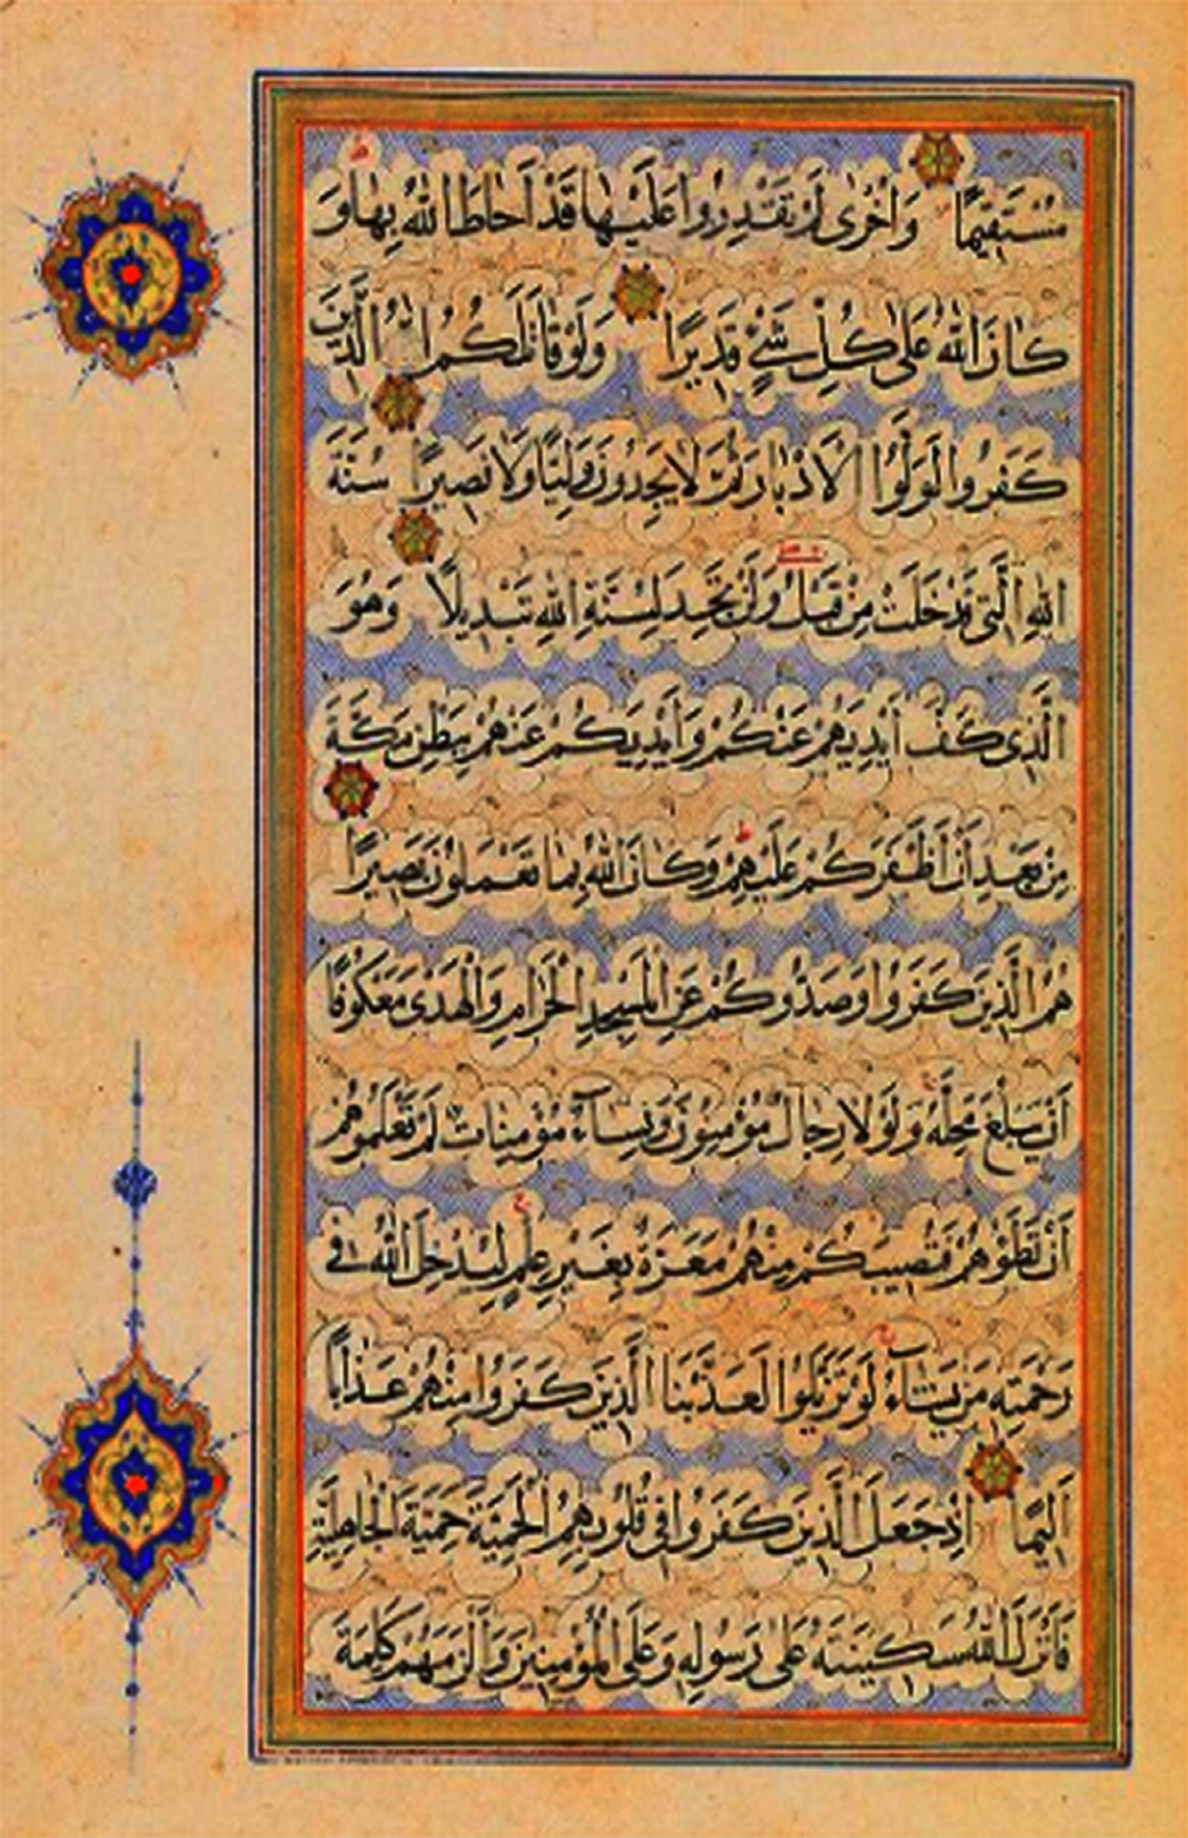 مُسْتَقِيمًا وَأُخْرَى لَمْ تَقْدِرُوا عَلَيْهَا قَدْ أَحَاطَ اللَّهُ بِهَا وَ
كَانَ اللَّهُ عَلَى كُلِّ شَيْءٍ قَدِيرًا وَلَوْ قَاتَلَكُمُ الَّذِينَ
كَفَرُوا لَوَلَّوُا الْأَدْبَارَ ثُمَّ لَا يَجِدُونَ وَلِيًّا وَلَا نَصِيرًا سُنَّةَ
اللَّهِ الَّتِي قَدْ خَلَتْ مِنْ قَبْلُ وَلَنْ تَجِدَ لِسُنَّةِ اللَّهِ تَبْدِيلًا وَهُوَ
الَّذِي كَفَّ أَيْدِيَهُمْ عَنْكُمْ وَأَيْدِيَكُمْ عَنْهُمْ بِبَطْنِ مَكَّةَ
مِنْ بَعْدِ أَنْ أَظْفَرَكُمْ عَلَيْهِمْ وَكَانَ اللَّهُ بِمَا تَعْمَلُونَ بَصِيرًا
هُمُ الَّذِينَ كَفَرُوا وَصَدُّوكُمْ عَنِ الْمَسْجِدِ الْحَرَامِ وَالْهَدْيَ مَعْكُوفًا
أَنْ يَبْلُغَ مَحِلَّهُ وَلَوْلَا رِجَالٌ مُؤْمِنُونَ وَنِسَاءٌ مُؤْمِنَاتٌ لَمْ تَعْلَمُوهُمْ
أَنْ تَطَئُوهُمْ فَتُصِيبَكُمْ مِنْهُمْ مَعَرَّةٌ بِغَيْرِ عِلْمٍ لِيُدْخِلَ اللَّهُ فِي
رَحْمَتِهِ مَنْ يَشَاءُ لَوْ تَزَيَّلُوا لَعَذَّبْنَا الَّذِينَ كَفَرُوا مِنْهُمْ عَذَابًا
أَلِيمًا إِذْ جَعَلَ الَّذِينَ كَفَرُوا فِي قُلُوبِهِمُ الْحَمِيَّةَ حَمِيَّةَ الْجَاهِلِيَّةِ
فَأَنْزَلَ اللَّهُ سَكِينَتَهُ عَلَى رَسُولِهِ وَعَلَى الْمُؤْمِنِينَ وَأَلْزَمَهُمْ كَلِمَةَ